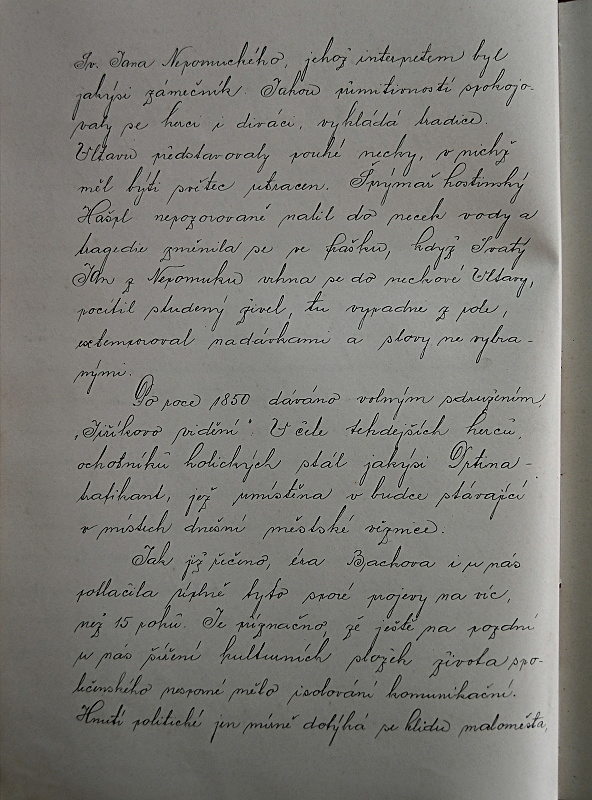 Sv. Jana Nepomuckého, jehož interpretem byl
jakýsi zámečník. Takou primitivností spokojo-
valy se herci i diváci, vykládá tradice.
Vltavu představovaly pouhé necky, v nichž
měl býti světec utracen. Šprýmař hostinský
Hašpl nepozorovaně nalil do necek vody a
tragedie změnila se ve frašku, když Svatý
Jan z Nepomuku vrhna se do neckové Vltavy,
pocítil studený živel, tu vypadne z role,
extemporoval nadávkami a slovy ne vybra-
nými.
Po roce 1850 dáváno volným sdružením
„Jiříkovo vidění". V čele tehdejších herců,
ochotníků holických stál jakýsi Drtina-
trafikant, jež umístěna v budce stávající
v místech dnešní městské věznice.
Jak již řečeno, éra Bachova i u nás
potlačila úplně tyto sporé projevy na víc,
než 15 roků. Je příznačno, že ještě na pozdní
u nas šíření kulturních složek života spo-
lečenského nesporně mělo isolování komunikační.
Hnutí politické jen mírně dotýká se klidu maloměsta,